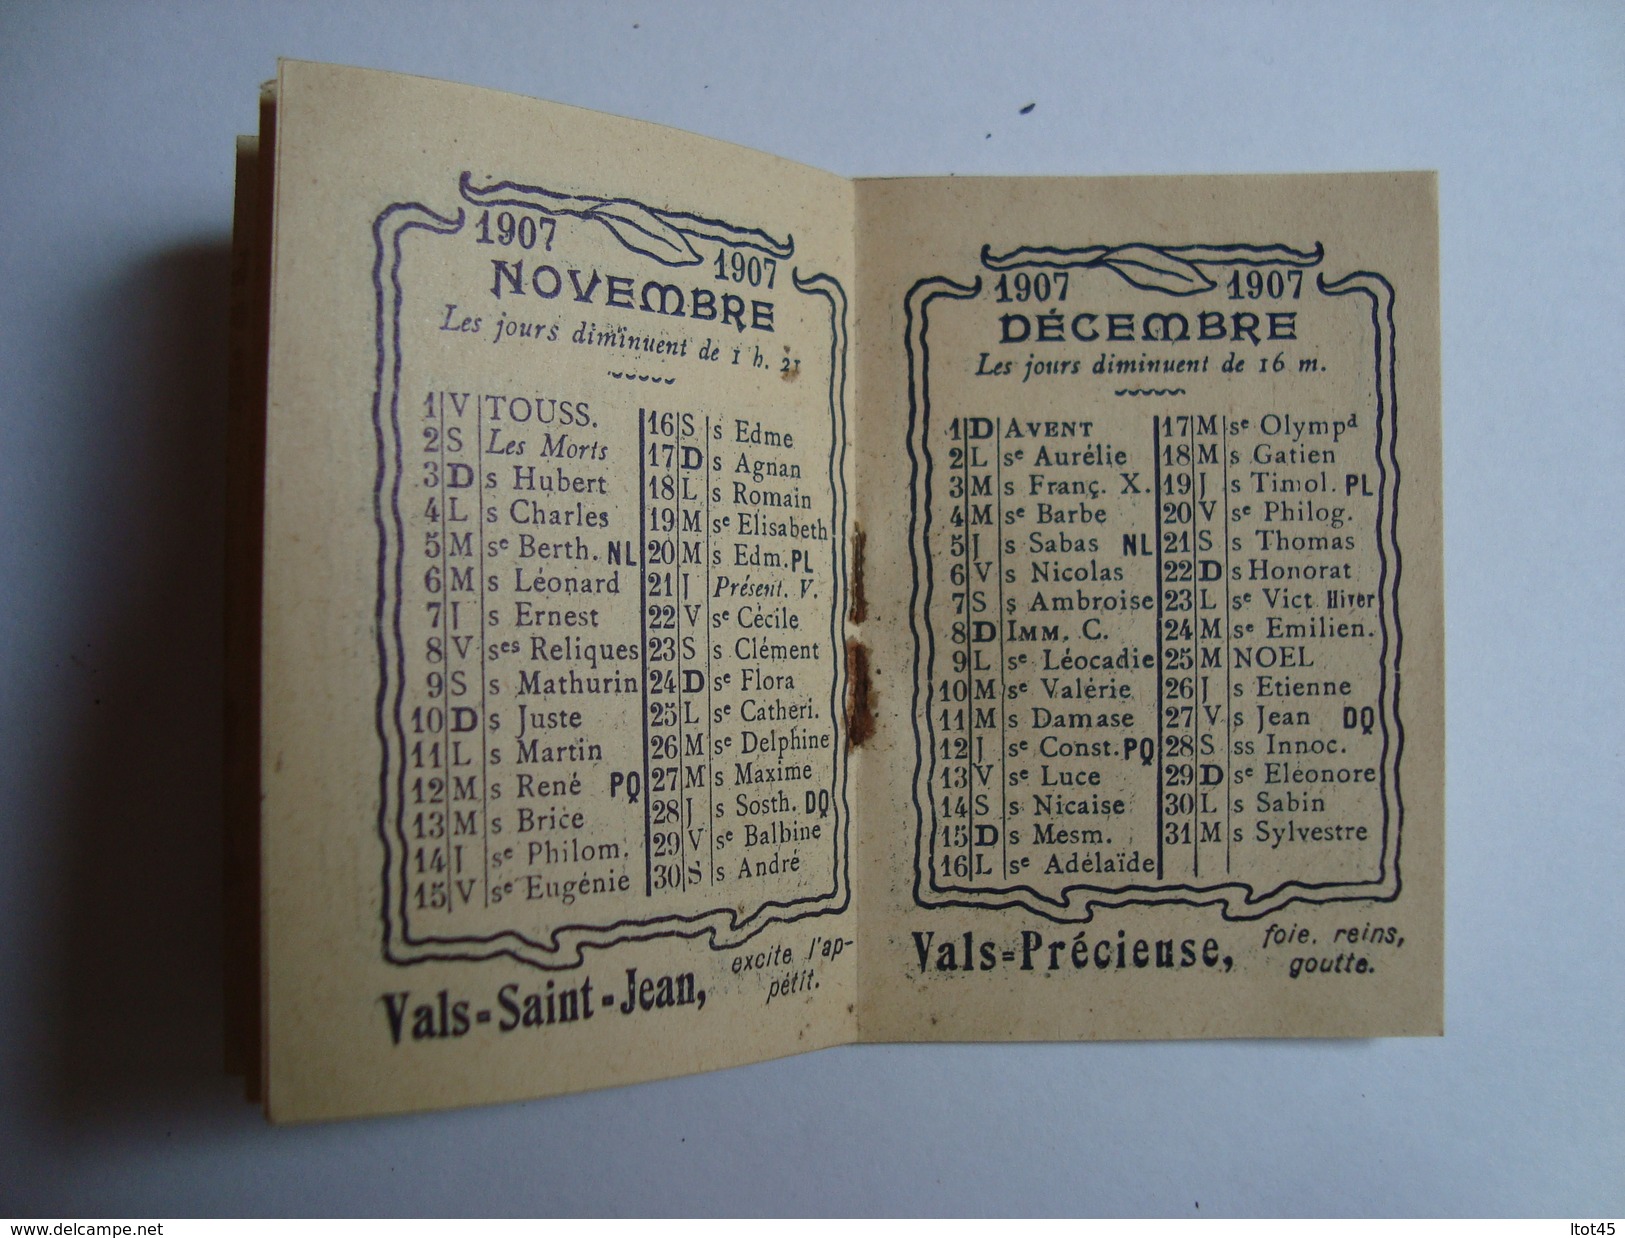 1907
1907
NOVEMBRE
Les jours diminuent de 1 h. 21
1 V TOUSS.
2 S Les Morts
3 D s Hubert
4 L s Charles
5 M se Berth. NL
6 M s Léonard
7 J s Ernest
8 V ses Reliques
9 S s Mathurin
10 D s Juste
11 L s Martin
12 M s René PQ
13 M s Brice
14 J se Philom.
15 V se Eugénie
16 S s Edme
17 D s Agnan
18 L s Romain
19 M se Elisabeth
20 M s Edm. PL
21 J Présent. V.
22 V se Cécile
23 S s Clément
24 D se Flora
25 L se Catheri.
26 M se Delphine
27 M s Maxime
28 J s Sosth. DQ
29 V se Balbine
30 S s André
Vals-Saint-Jean, excite l'ap-
pétit.
1907 1907
DÉCEMBRE
Les jours diminuent de 16 m.
1 D AVENT
2 L se Aurélie
3 M s Franç. X.
4 M se Barbe
5 J s Sabas NL
6 V s Nicolas
7 S s Ambroise
8 D IMM. C.
9 L se Léocadie
10 M se Valérie
11 M s Damase
12 J se Const. PQ
13 V se Luce
14 S s Nicaise
15 D s Mesm.
16 L se Adélaïde
17 M se Olympd
18 M s Gatien
19 J s Timol. PL
20 V se Philog.
21 S s Thomas
22 D s Honorat
23 L se Vict Hiver
24 M se Emilien.
25 M NOEL
26 J s Etienne
27 V s Jean DQ
28 S ss Innoc.
29 D se Eléonore
30 L s Sabin
31 M s Sylvestre
Vals-Précieuse, foie, reins,
goutte.
www.delcampe.net
ltot45